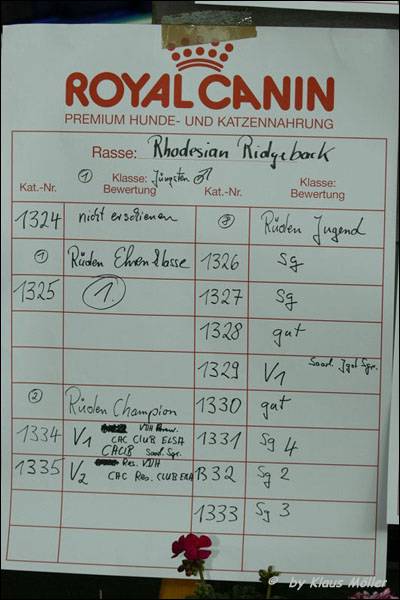 ROYAL CANIN
PREMIUM HUNDE- UND KATZENNAHRUNG
Rasse: Rhodesian Ridgeback
Kat.-Nr.
① Klasse: Jüngsten ♂
Bewertung
Kat.-Nr.
Klasse:
Bewertung
1324 nicht erschienen
① Rüden Ehrenklasse
1325 ①.
② Rüden Champion
1334 V1 VDH
CAC CLUB ELSA
CACIB Saarl. Sgr.
1335 V2 Res. VDH
CAC Res. CLUB ELSA
③ Rüden Jugend
1326 Sg
1327 Sg
1328 gut
1329 V1 Saarl. Jgd Sgr.
1330 gut
1331 Sg 4
1332 Sg 2
1333 Sg 3
© by Klaus Möller